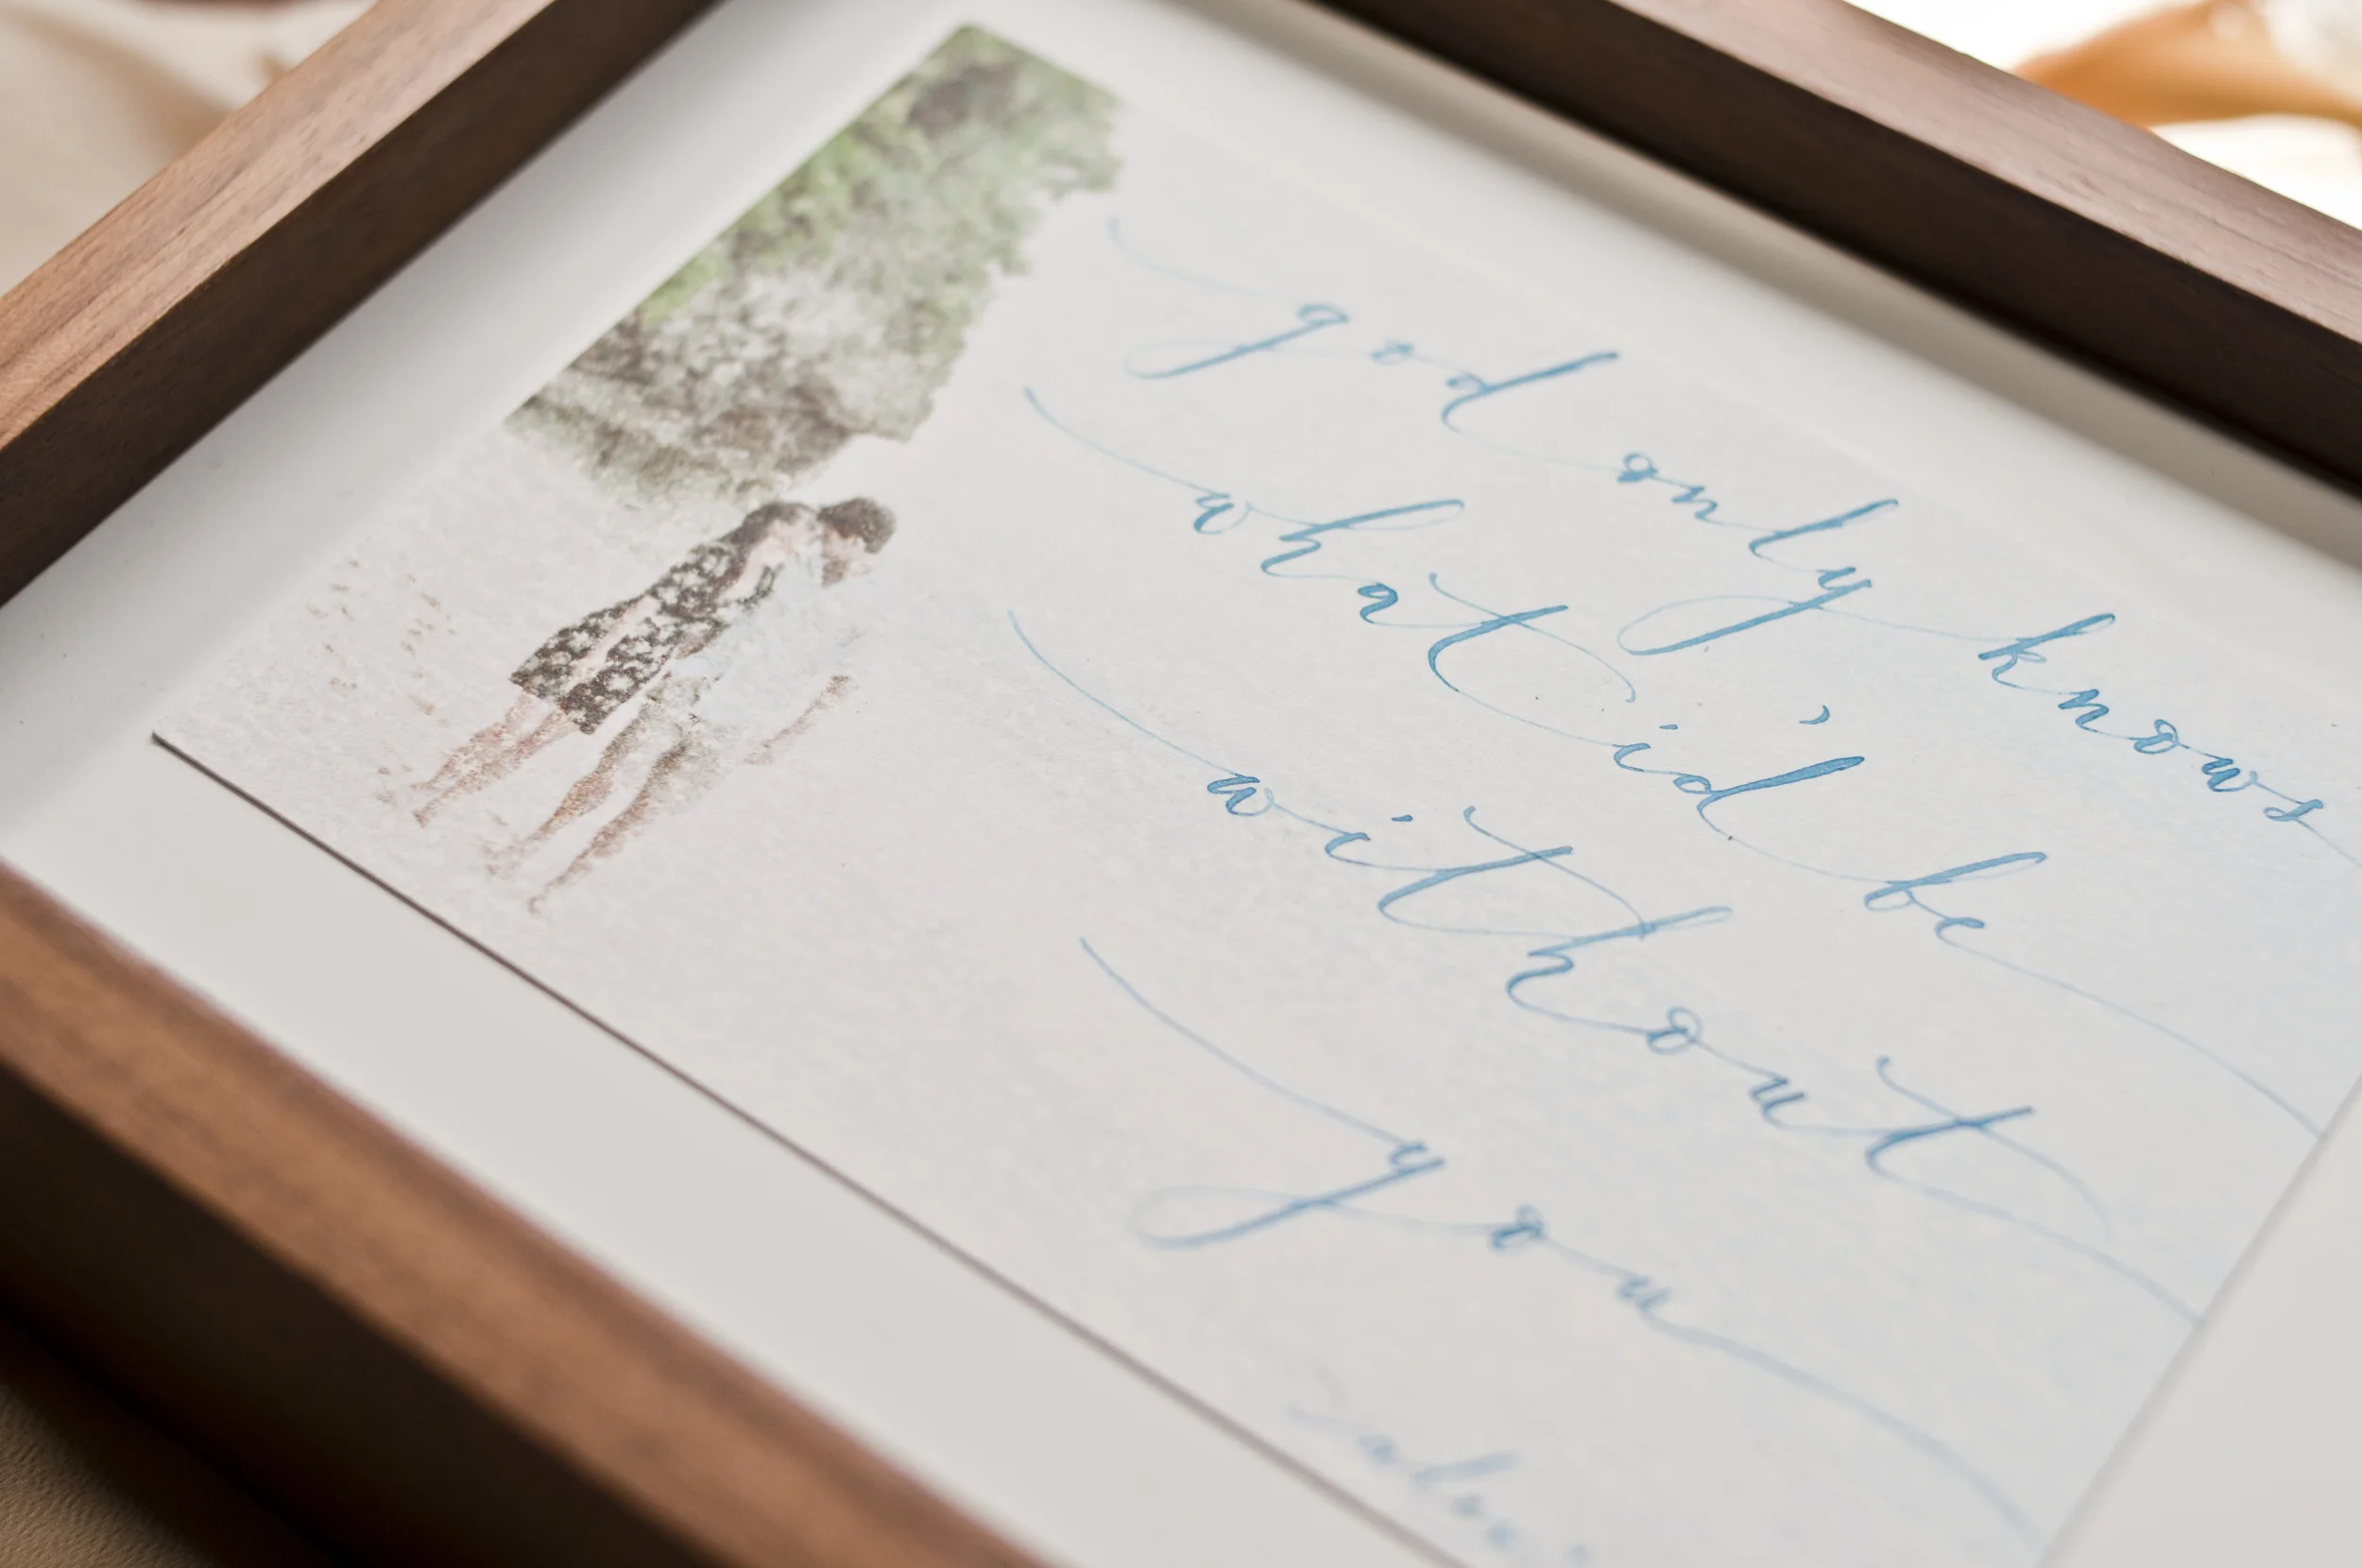 god only knows
what i'd be
without
you